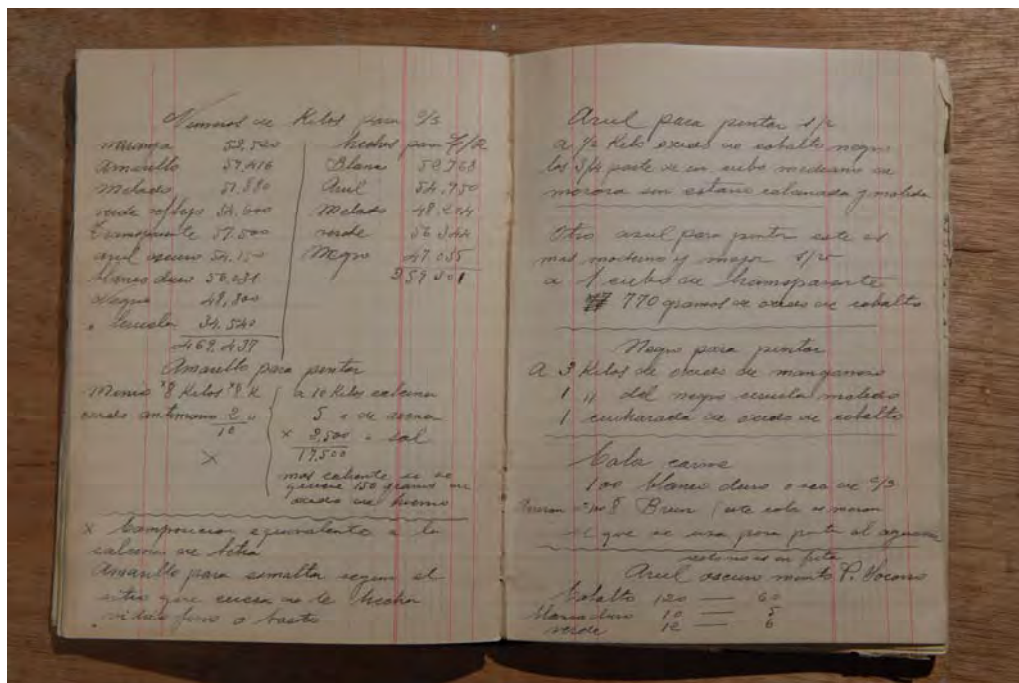 Numero de Kilos para c/s
naranja 52,520
amarillo 57,416
melado 51.880
verde reflejo 54.600
Transparente 57.500
azul oscuro 54.150
blanco duro 56.031
Negro 48,800
Ciruela 34.540
469.437
hechos para F/R
Blanco 52,768
Azul 54.750
Melado 48.204
verde 56 344
Negro 47.035
259 301
Amarillo para pintar
Minio 8 Kilos 8 K
oxido antimonio 2
10
a 10 Kilos calcina
5 " de arena
x 2,500 " sal
17,500
mas caliente si se
quiere 150 gramos de
oxido de hierro
x Composicion equivalente a la
calcina de
Amarillo para esmaltar segun el
sitio que cueza se le hechar
vidrio fino o basto
Azul para pintar s/v
a 1/2 Kilo oxido de cobalto negro
las 3/4 parte de un cubo mediano de
sin estano calcinada y molida
Otro azul para pintar este es
mas moderno y mejor s/v
a 1 cubo de transparente
770 gramos de oxido de cobalto
Negro para pintar
A 3 Kilos de oxido de manganeso
1 " del negro ciruela molido
1 cucharada de oxido de cobalto
Cola carne
100 blanco duro o sea de c/s
8 (este cola
el que se usa para
esto no es en frita
Azul oscuro P. Socorro
Cobalto 120 — 60
blanco duro 10 — 5
verde 12 — 6